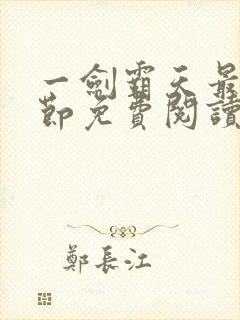 一劍霸天最
節免費閱讀
鄭長江